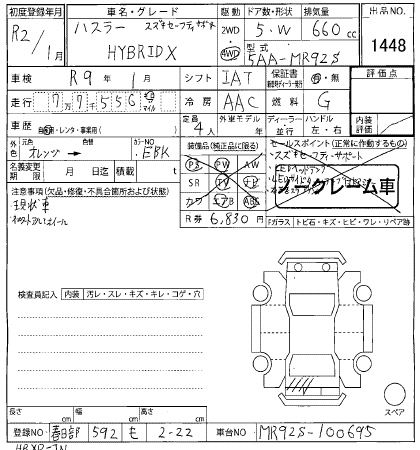 初度登録年月 車名・グレード 駆動 ドア数・形状 排気量 出品NO.
R2/1月 ハスラー スズキセーフティサポート 2WD 4WD 5・W 660cc 1448
HYBRID X 型式 5AA-MR92S
車検 R9年1月 シフト IAT 保証書 有・無 評価点
走行 77,556 キロ マイル 冷房 AAC 燃料 G
車歴 自家用・レンタ・事業用( ) 定員 4人 外車モデル 年 ディーラー 並行 ハンドル 左・右 内装評価
外色 元色 オレンジ 色替 カラーNO. EBK 装備品(純正品に限る) セールスポイント(正常に作動するもの)
PS PW AW スズキセーフティサポート
名義変更期限 月 日迄 積載 t SR
カワ エアB ABS ノークレーム車
注意事項(欠品・修復・不具合箇所および状態)
現状車
R券 6,830円 Fガラス トビ石・キズ・ヒビ・ワレ・リペア跡
検査員記入 内装 汚レ・スレ・キズ・キレ・コゲ・穴
スペア
長さ cm 幅 cm 高さ cm
登録NO 春日部 592 モ 2-22 車台NO MR92S-100695